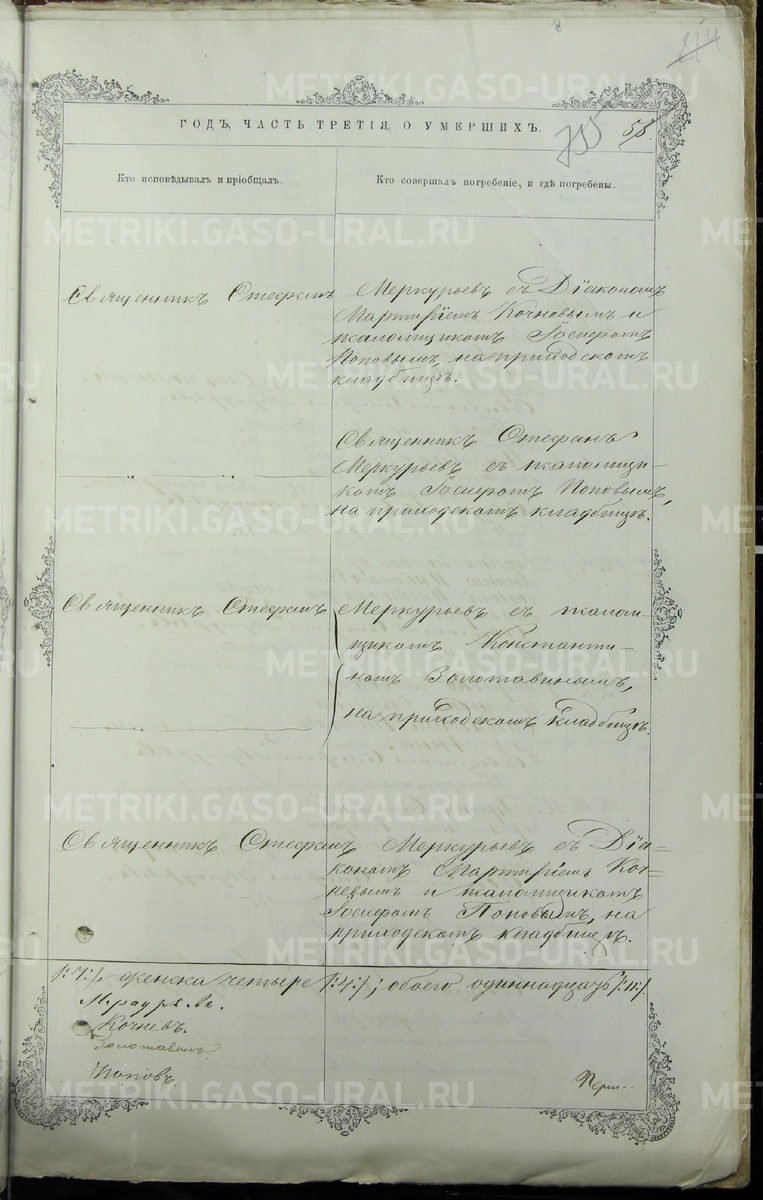 214
ГОДЪ, ЧАСТЬ ТРЕТІЯ, О УМЕРШИХЪ.
755 55.
Кто исповѣдывалъ и пріобщалъ.
Кто совершалъ погребеніе, и гдѣ погребены.
Священникъ Стефанъ Меркурьевъ съ Діакономъ
Мартиріемъ Кочновымъ и
псаломщикомъ Іосифомъ
Поповымъ, на приходскомъ
кладбищѣ.
Священникъ Стефанъ
Меркурьевъ съ псаломщи-
комъ Іосифомъ Поповымъ,
на приходскомъ кладбищѣ.
Священникъ Стефанъ Меркурьевъ съ псалом-
щикомъ Константи-
номъ Золотавинымъ,
на приходскомъ кладбищѣ.
Священникъ Стефанъ Меркурьевъ съ Діа-
кономъ Мартиріемъ Коч-
невымъ и псаломщикомъ
Іосифомъ Поповымъ, на
приходскомъ кладбищѣ.
/:7:/, женска четыре /:4:/; обоего одиннадцать /:11:/
Меркурьевъ.
Кочневъ.
Золотавинъ
Поповъ.
METRIKI.GASO-URAL.RU